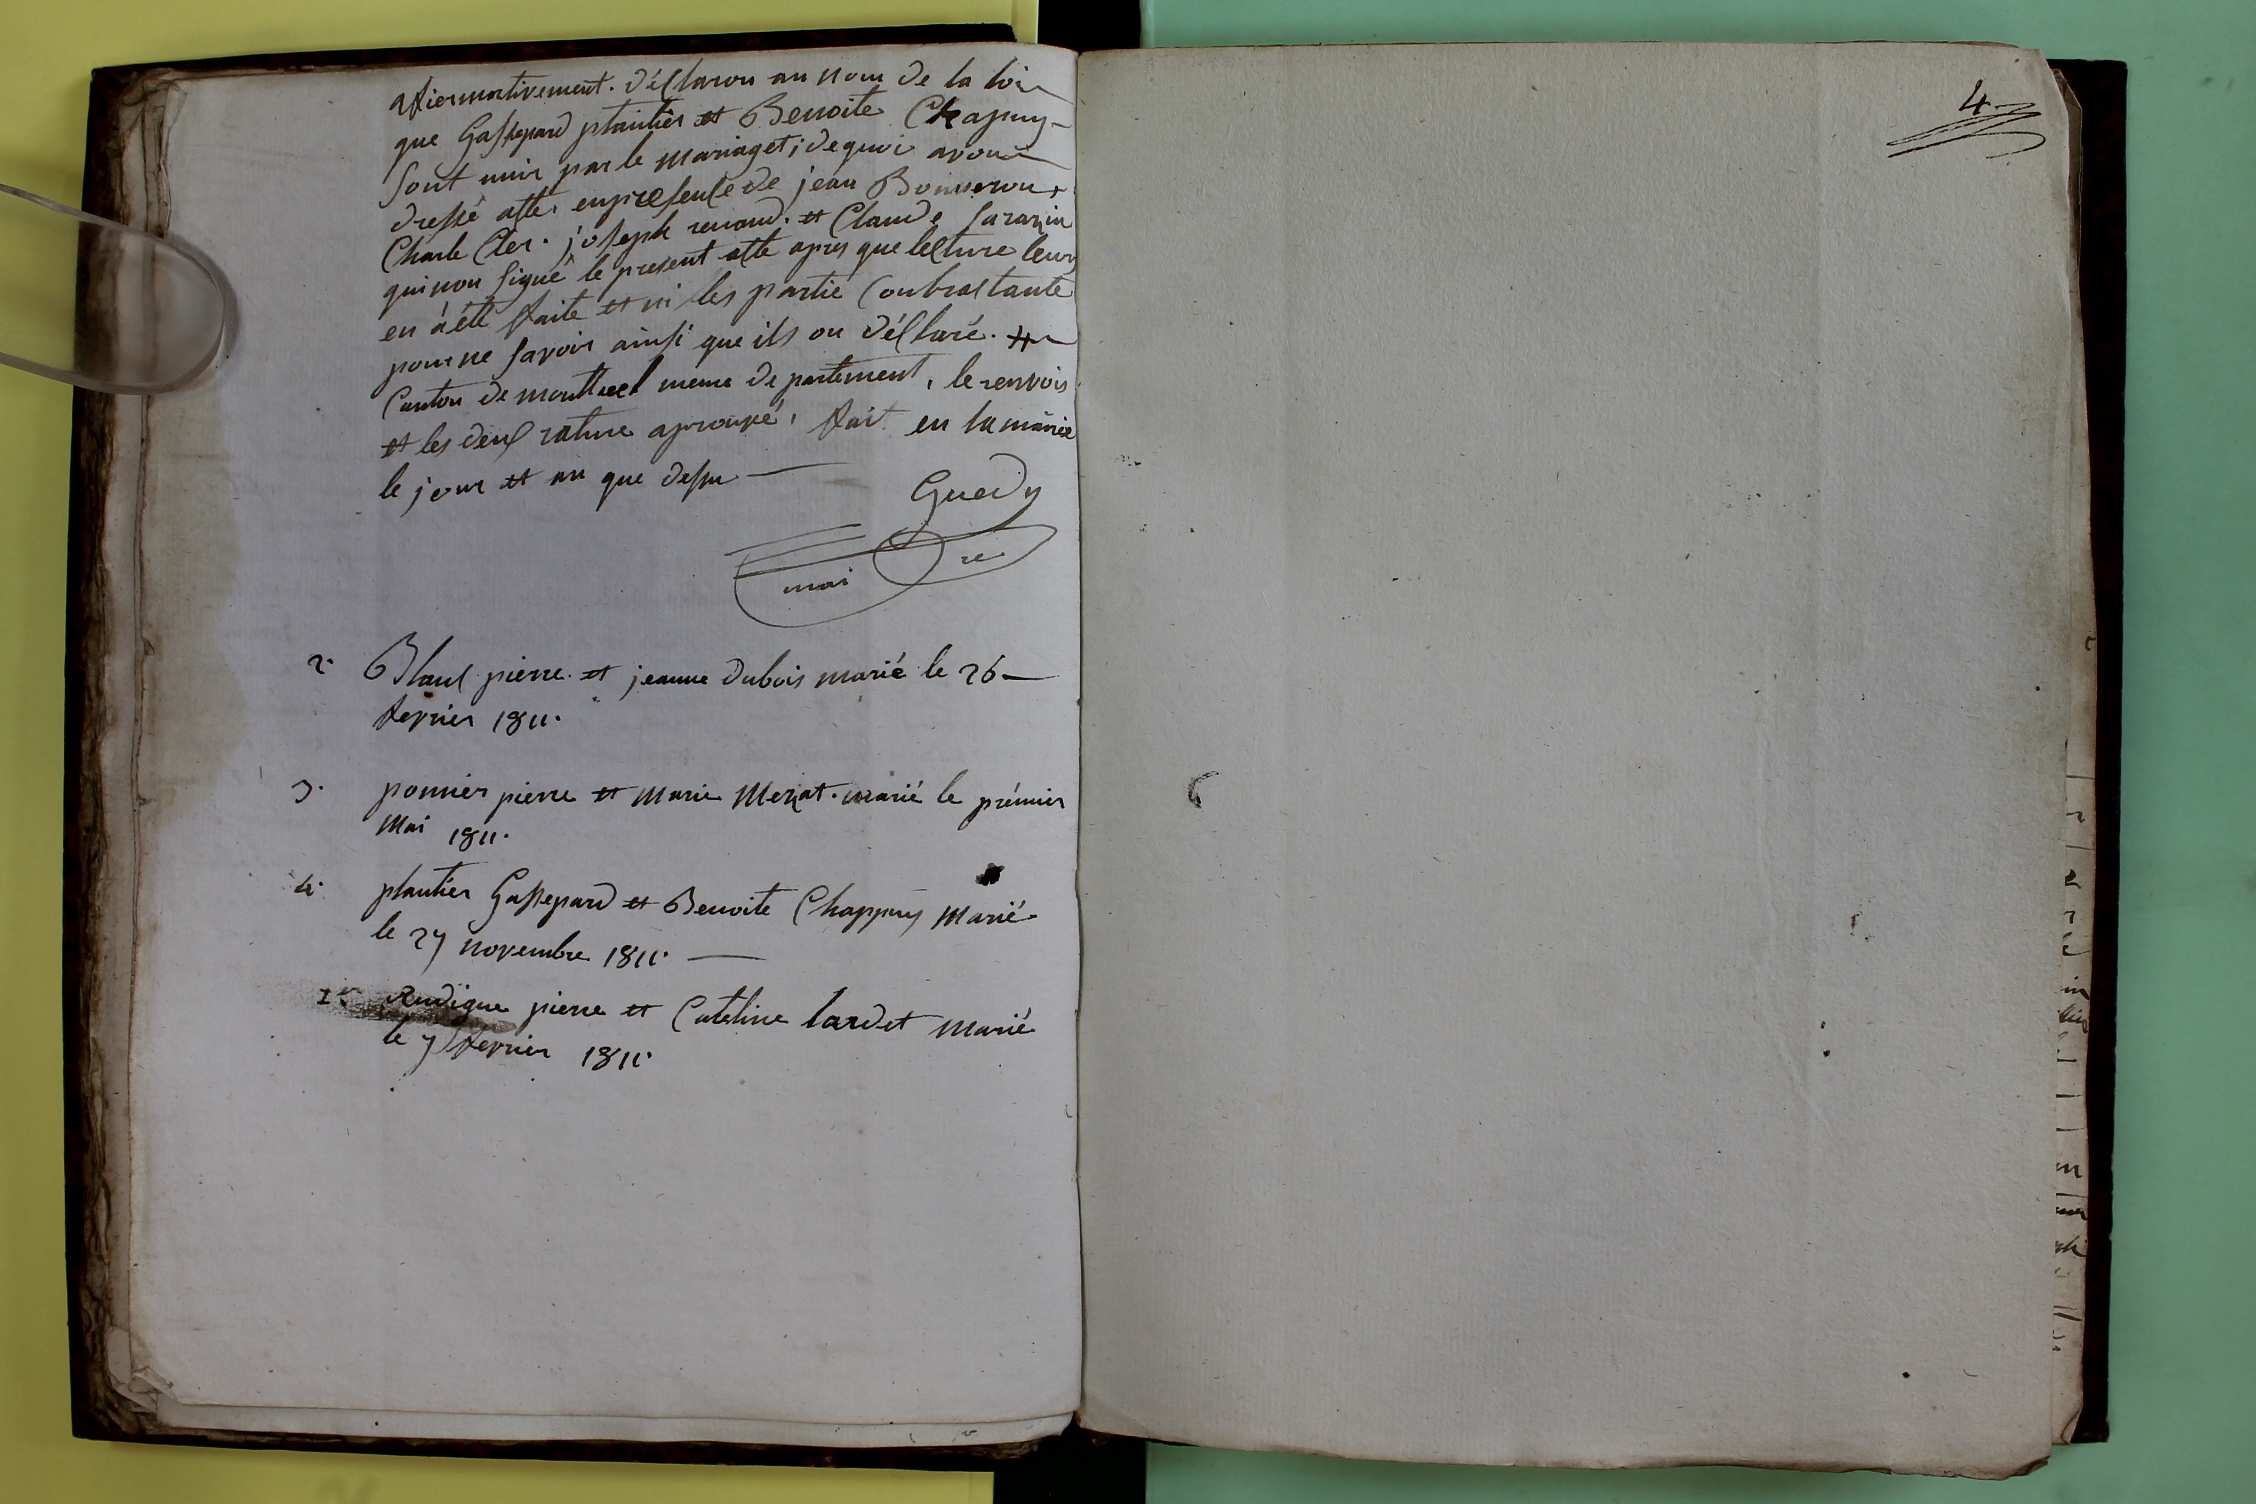 affiermativement. déclaron au nom de la loi
que Gastepard plantier et Benoite Chapuy
sont unir par le mariaget; de quoi avon
dressé acte, en presence de jean Bonneron,
Charle Cler. joseph renaud. et Claude sarazin
qui non signé le present acte apres que lecture leur
en à été faite et ni les partie Contractante
pour ne savoir ainsi que ils on déclaré. #
Canton de montluel meme departement, le renvois
et les deux rature aprouvé, fait en la mairie
le jour et an que dessu
Guedy
mai re
2. Blanc pierre et jeanne Dubois marié le 26
fevrier 1811.
3. ponnier pierre et Marie Merat. marié le prémier
Mai 1811.
4. plantier Gastepard et Benoite Chappuy Marié
le 27 novembre 1811.
1er Rudigue pierre et Cateline lardet marié
le 7 fevrier 1811.
4